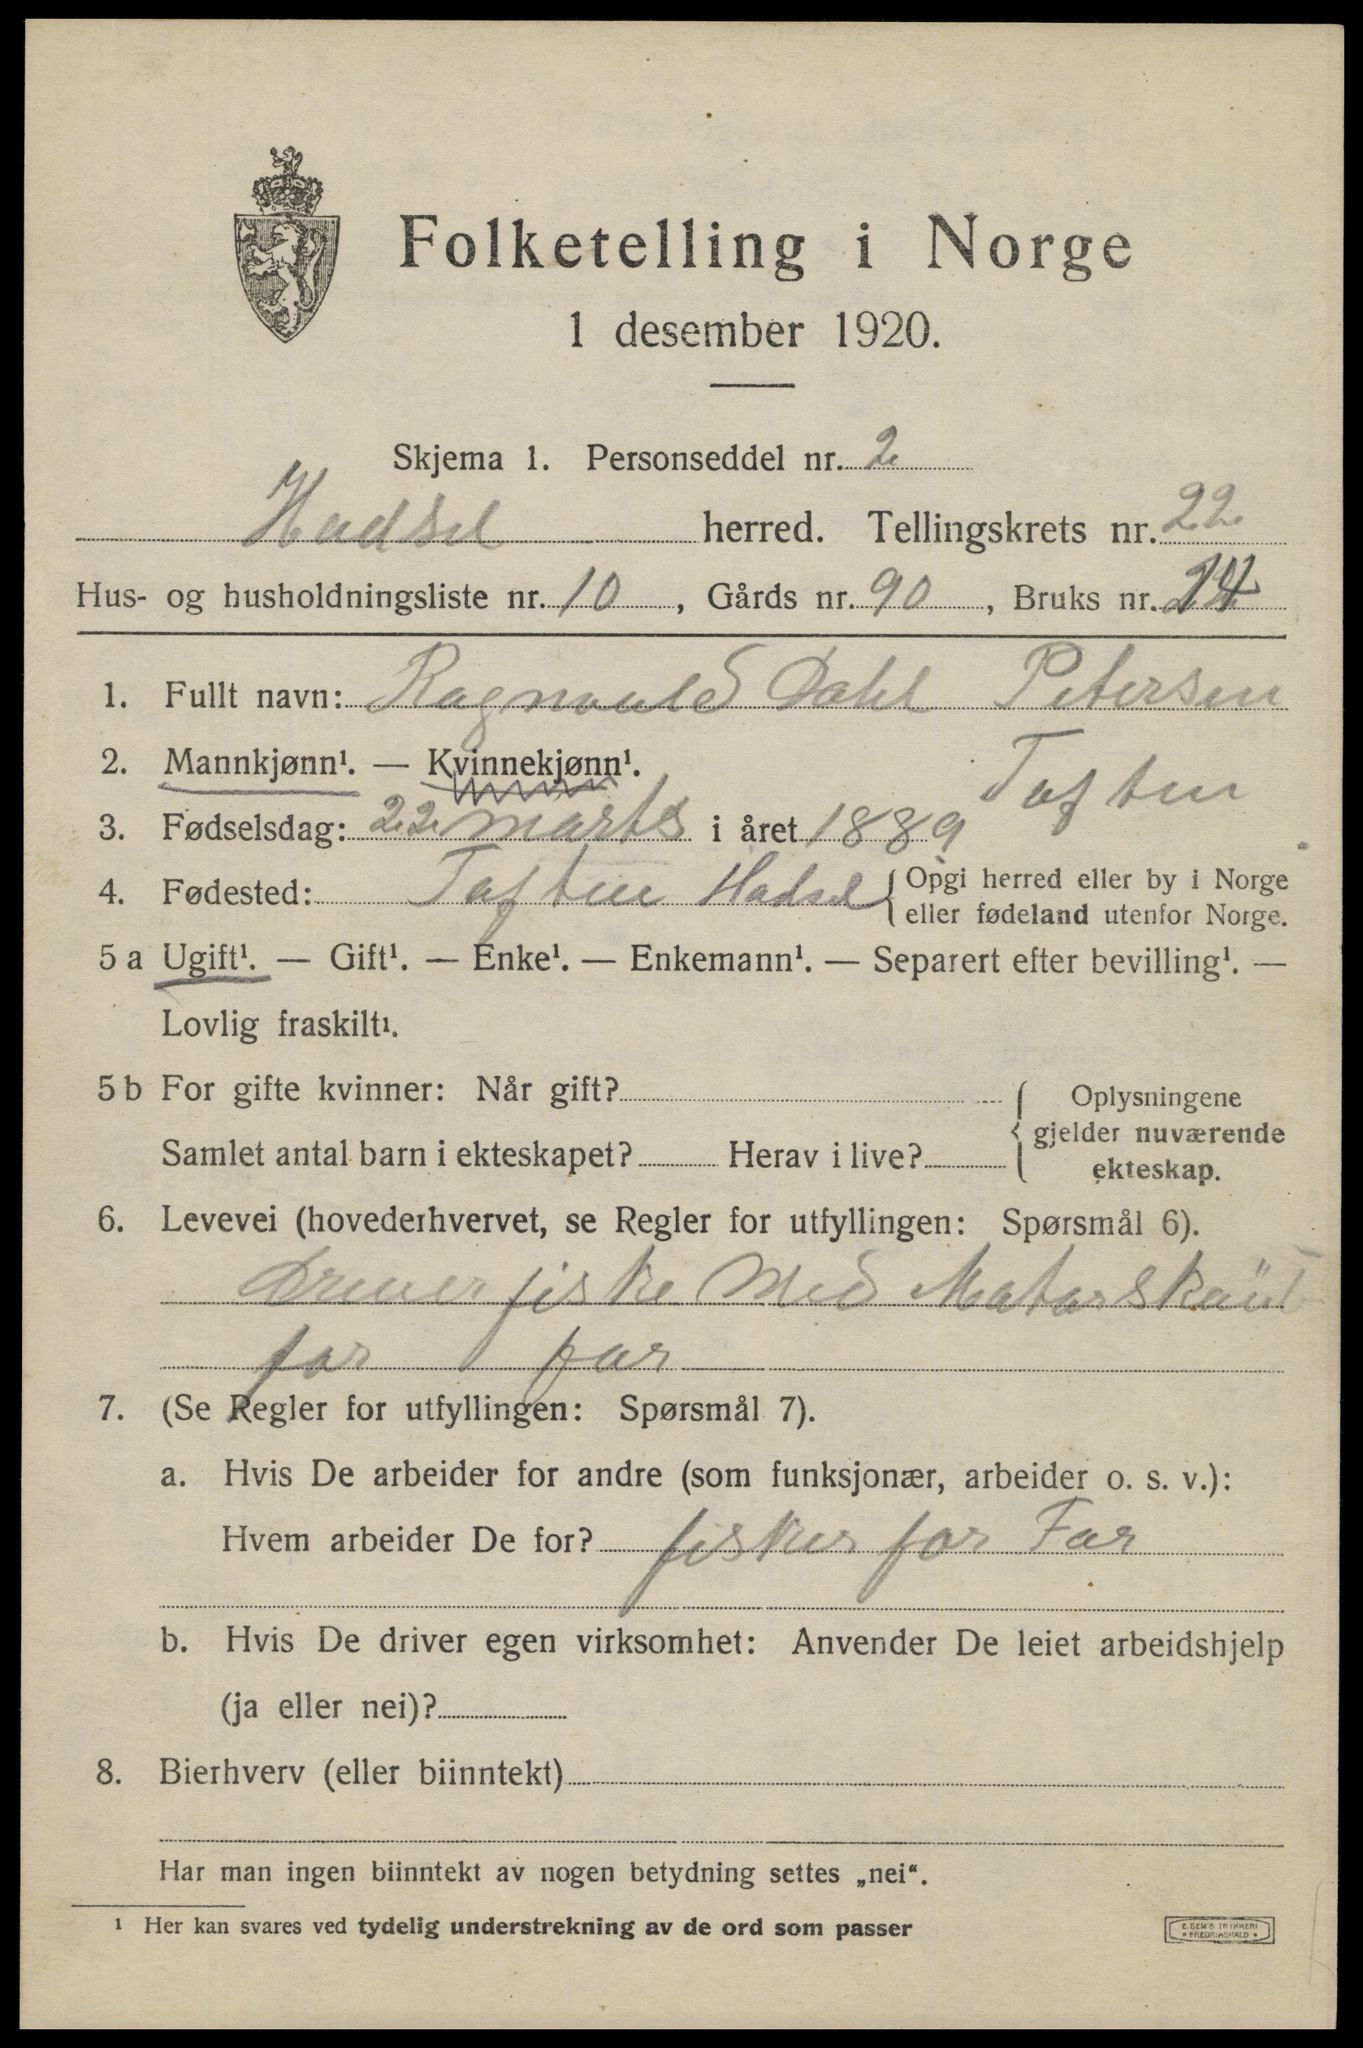 Folketelling i Norge
1 desember 1920.
Skjema 1. Personseddel nr. 2
Hadsel herred. Tellingskrets nr. 22
Hus- og husholdningsliste nr. 10, Gårds nr. 90, Bruks nr.
1. Fullt navn: Ragnvald Dahl Petersen
2. Mannkjønn¹. — Kvinnekjønn¹.
Taften
3. Fødselsdag: 22 marts i året 1889
4. Fødested: Taften Hadsel { Opgi herred eller by i Norge
eller fødeland utenfor Norge.
5 a Ugift¹. — Gift¹. — Enke¹. — Enkemann¹. — Separert efter bevilling¹. —
Lovlig fraskilt¹.
5 b For gifte kvinner: Når gift? { Oplysningene
gjelder nuværende
Samlet antal barn i ekteskapet? Herav i live?
ekteskap.
6. Levevei (hovederhvervet, se Regler for utfyllingen: Spørsmål 6).
Driver fiske Med Motorskøit
for far
7. (Se Regler for utfyllingen: Spørsmål 7).
a. Hvis De arbeider for andre (som funksjonær, arbeider o. s. v.):
Hvem arbeider De for? fisker for Far
b. Hvis De driver egen virksomhet: Anvender De leiet arbeidshjelp
(ja eller nei)?
8. Bierhverv (eller biinntekt)
Har man ingen biinntekt av nogen betydning settes „nei“.
¹ Her kan svares ved tydelig understrekning av de ord som passer
E. SEM'S TRYKKERI
FREDRIKSHALD